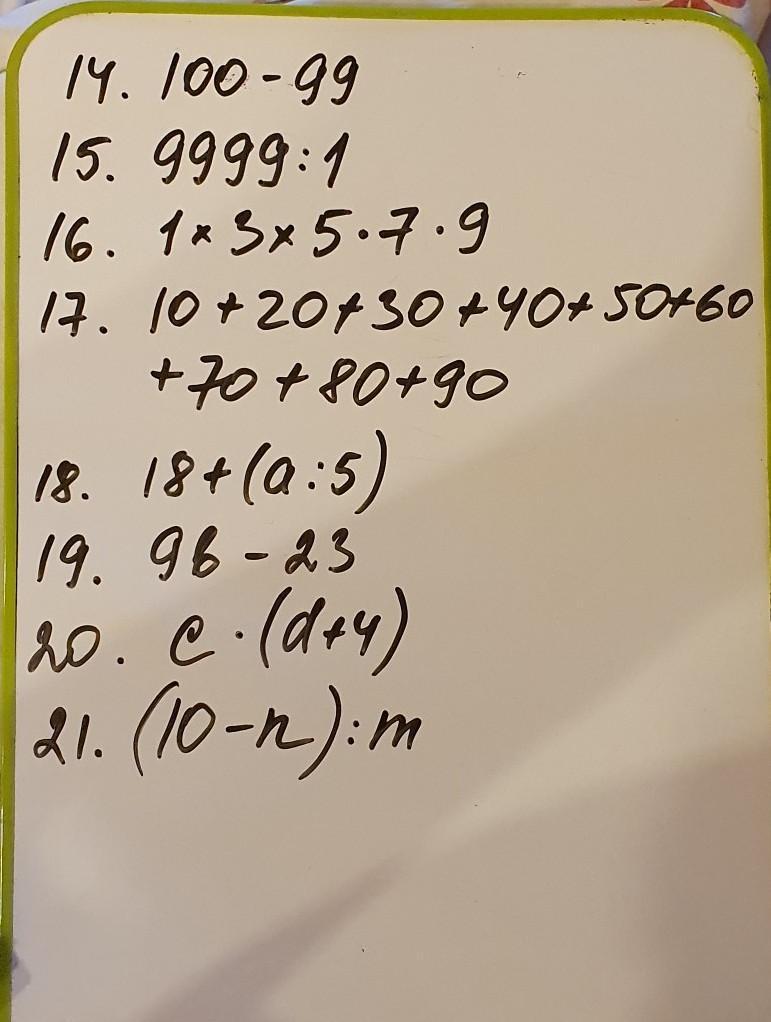 14. 100 - 99
15. 9999 : 1
16. 1 × 3 × 5 · 7 · 9
17. 10 + 20 + 30 + 40 + 50 + 60
+ 70 + 80 + 90
18. 18 + (a : 5)
19. 9b - 23
20. c · (d + 4)
21. (10 - n) : m